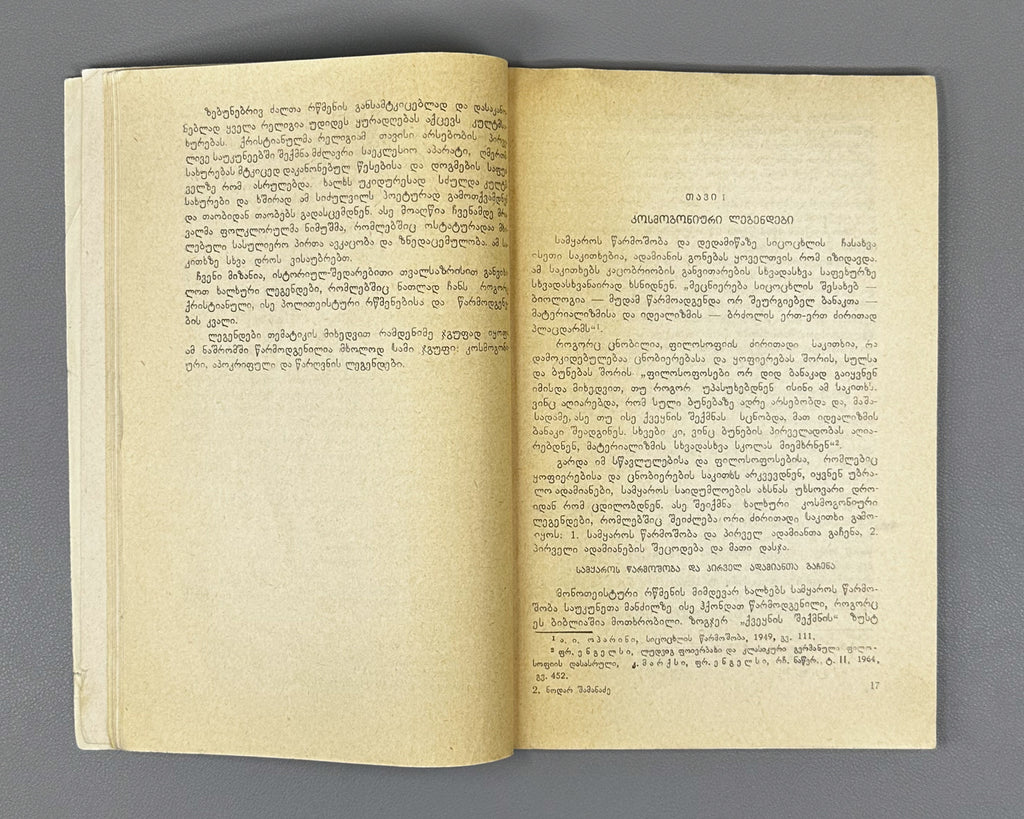 ზებუნებრივ ძალთა რწმენის განსამტკიცებლად და დასაკანო
ნებლად ყველა რელიგია უდიდეს ყურადღებას აქცევს კულტმსა
ხურებას. ქრისტიანულმა რელიგიამ თავისი არსებობის პირვე
ლივე საუკუნეებში შექმნა მძლავრი საეკლესიო აპარატი, ღმერთს
სახურებას მტკიცედ დაკანონებულ წესებისა და დოგმების საფუ
ველზე რომ ასრულებდა. ხალხს უკიდურესად სძულდა კულტ
სახურები და ხშირად ამ სიძულვილს პოეტურად გამოთქვამდნენ
და თაობიდან თაობებს გადასცემდნენ. ასე მოაღწია ჩვენამდე მრა
ვალმა ფოლკლორულმა ნიმუშმა, რომლებშიც ოსტატურადაა მხ
ლებული სასულიერო პირთა ავკაცობა და ზნედაცემულობა. ამ სა
კითხზე სხვა დროს ვისაუბრებთ.
ჩვენი მიზანია, ისტორიულ-შედარებითი თვალსაზრისით განვიხი
ლოთ ხალხური ლეგენდები, რომლებშიც ნათლად ჩანს როგორ
ქრისტიანული, ისე პოლითეისტური რწმენებისა და წარმოდგენე
ბის კვალი.
ლეგენდები თემატიკის მიხედვით რამდენიმე ჯგუფად იყოფა
ამ ნაშრომში წარმოდგენილია მხოლოდ სამი ჯგუფი: კოსმოგონი
ური, აპოკრიფული და წარღვნის ლეგენდები.
თავი I
კოსმოგონიური ლეგენდები
სამყაროს წარმოშობა და დედამიწაზე სიცოცხლის ჩასახვა
ისეთი საკითხებია, ადამიანის გონებას ყოველთვის რომ იზიდავდა.
ამ საკითხებს კაცობრიობის განვითარების სხვადასხვა საფეხურზე
სხვადასხვანაირად ხსნიდნენ. „მეცნიერება სიცოცხლის შესახებ —
ბიოლოგია — მუდამ წარმოადგენდა ორ შეურიგიებელ ბანაკთა —
მატერიალიზმისა და იდეალიზმის — ბრძოლის ერთ-ერთ ძირითად
პლაცდარმს“¹.
როგორც ცნობილია, ფილოსოფიის ძირითადი საკითხია, რა
დამოკიდებულებაა ცნობიერებასა და ყოფიერებას შორის, სულსა
და ბუნებას შორის „ფილოსოფოსები ორ დიდ ბანაკად გაიყვნენ
იმისდა მიხედვით, თუ როგორ უპასუხებდნენ ისინი ამ საკითხს.
ვინც აღიარებდა, რომ სული ბუნებაზე ადრე არსებობდა და, მაშა-
სადამე, ასე თუ ისე ქვეყნის შექმნას სცნობდა, მათ იდეალიზმის
ბანაკი შეადგინეს. სხვები კი, ვინც ბუნების პირველადობას აღია-
რებდნენ, მატერიალიზმის სხვადასხვა სკოლას მიემხრნენ“².
გარდა იმ სწავლულებისა და ფილოსოფოსებისა, რომლებიც
ყოფიერებისა და ცნობიერების საკითხს არკვევდნენ, იყვნენ უბრა-
ლო ადამიანები, სამყაროს საიდუმლოების ახსნას უხსოვარი დრო-
იდან რომ ცდილობდნენ. ასე შეიქმნა ხალხური კოსმოგონიური
ლეგენდები, რომლებშიც შეიძლება ორი ძირითადი საკითხი გამო-
იყოს: 1. სამყაროს წარმოშობა და პირველ ადამიანთა გაჩენა, 2.
პირველი ადამიანების შეცოდება და მათი დასჯა.
სამყაროს წარმოშობა და პირველ ადამიანთა გაჩენა
მონოთეისტური რწმენის მიმდევარ ხალხებს სამყაროს წარმო-
შობა საუკუნეთა მანძილზე ისე ჰქონდათ წარმოდგენილი, როგორც
ეს ბიბლიაშია მოთხრობილი. ზოგჯერ „ქვეყნის შექმნის“ ზუსტ
¹ ა. ი. ოპარინი, სიცოცხლის წარმოშობა, 1949, გვ. 111.
² ფრ. ენგელსი, ლუდვიგ ფოიერბახი და კლასიკური გერმანული ფილო-
სოფიის დასასრული, კ. მარქსი, ფრ. ენგელსი, რჩ. ნაწერ., ტ. II, 1964,
გვ. 452.
2. ნოდარ შამანაძე
17